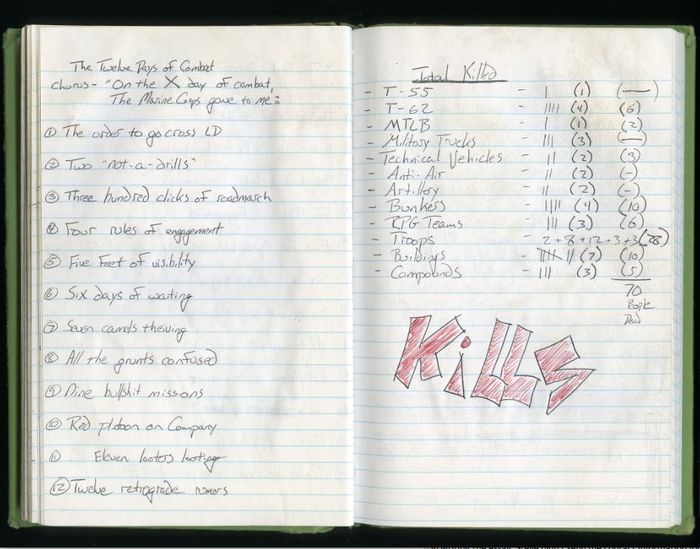 The Twelve Days of Combat
chorus- "On the X day of combat,
The Marine Corps gave to me:
① The order to go cross LD
② Two "not-a-drills"
③ Three hundred clicks of roadmarch
④ Four rules of engagement
⑤ Five feet of visibility
⑥ Six days of waiting
⑦ Seven camels chewing
⑧ All the grunts confused
⑨ Nine bullshit missions
⑩ Red platoon on Company
⑪ Eleven looters looting
⑫ Twelve retrograde rumors
Total Killed
- T-55 - | (1) (—)
- T-62 - |||| (4) (6)
- MTLB - | (1) (2)
- Military Trucks - ||| (3) (—)
- Technical Vehicles - || (2) (3)
- Anti-Air - || (2) (-)
- Artillery - || (2) (-)
- Bunkers - |||| (4) (10)
- RPG Teams - ||| (3) (6)
- Troops - 2+8+12+3+3 (28)
- Buildings - |||| || (7) (10)
- Compounds - ||| (3) (5)
70
People
Dead
Kills